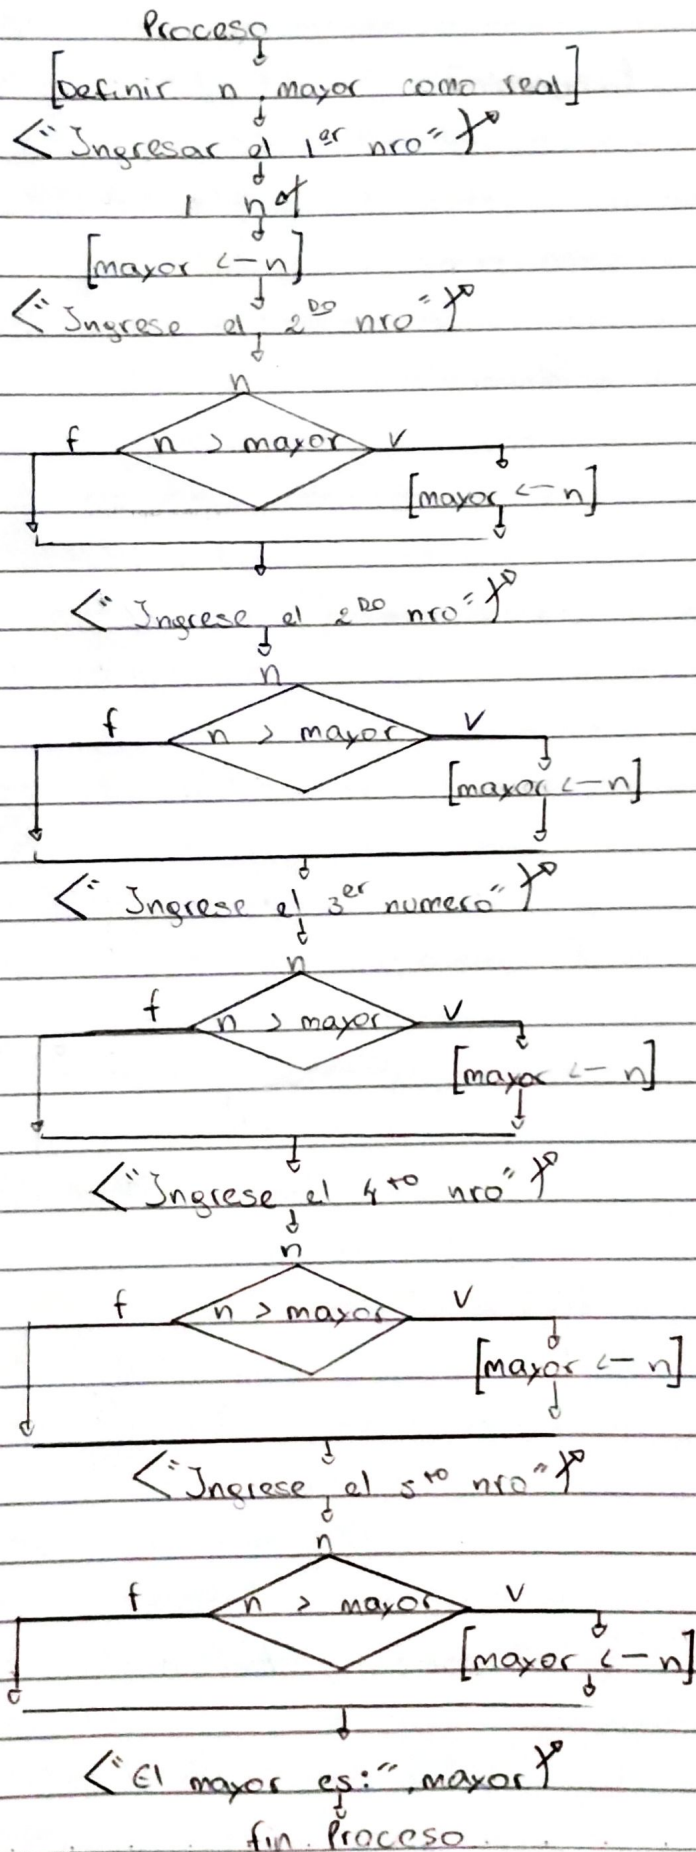 Proceso
[Definir n, mayor como real]
<"Ingresar el 1er nro"
n
[mayor <- n]
<"Ingrese el 2DO nro"
n
f n > mayor v
[mayor <- n]
<"Ingrese el 2DO nro"
n
f n > mayor v
[mayor <- n]
<"Ingrese el 3er numero"
n
f n > mayor v
[mayor <- n]
<"Ingrese el 4to nro"
n
f n > mayor v
[mayor <- n]
<"Ingrese el 5to nro"
n
f n > mayor v
[mayor <- n]
<"El mayor es:", mayor
fin Proceso